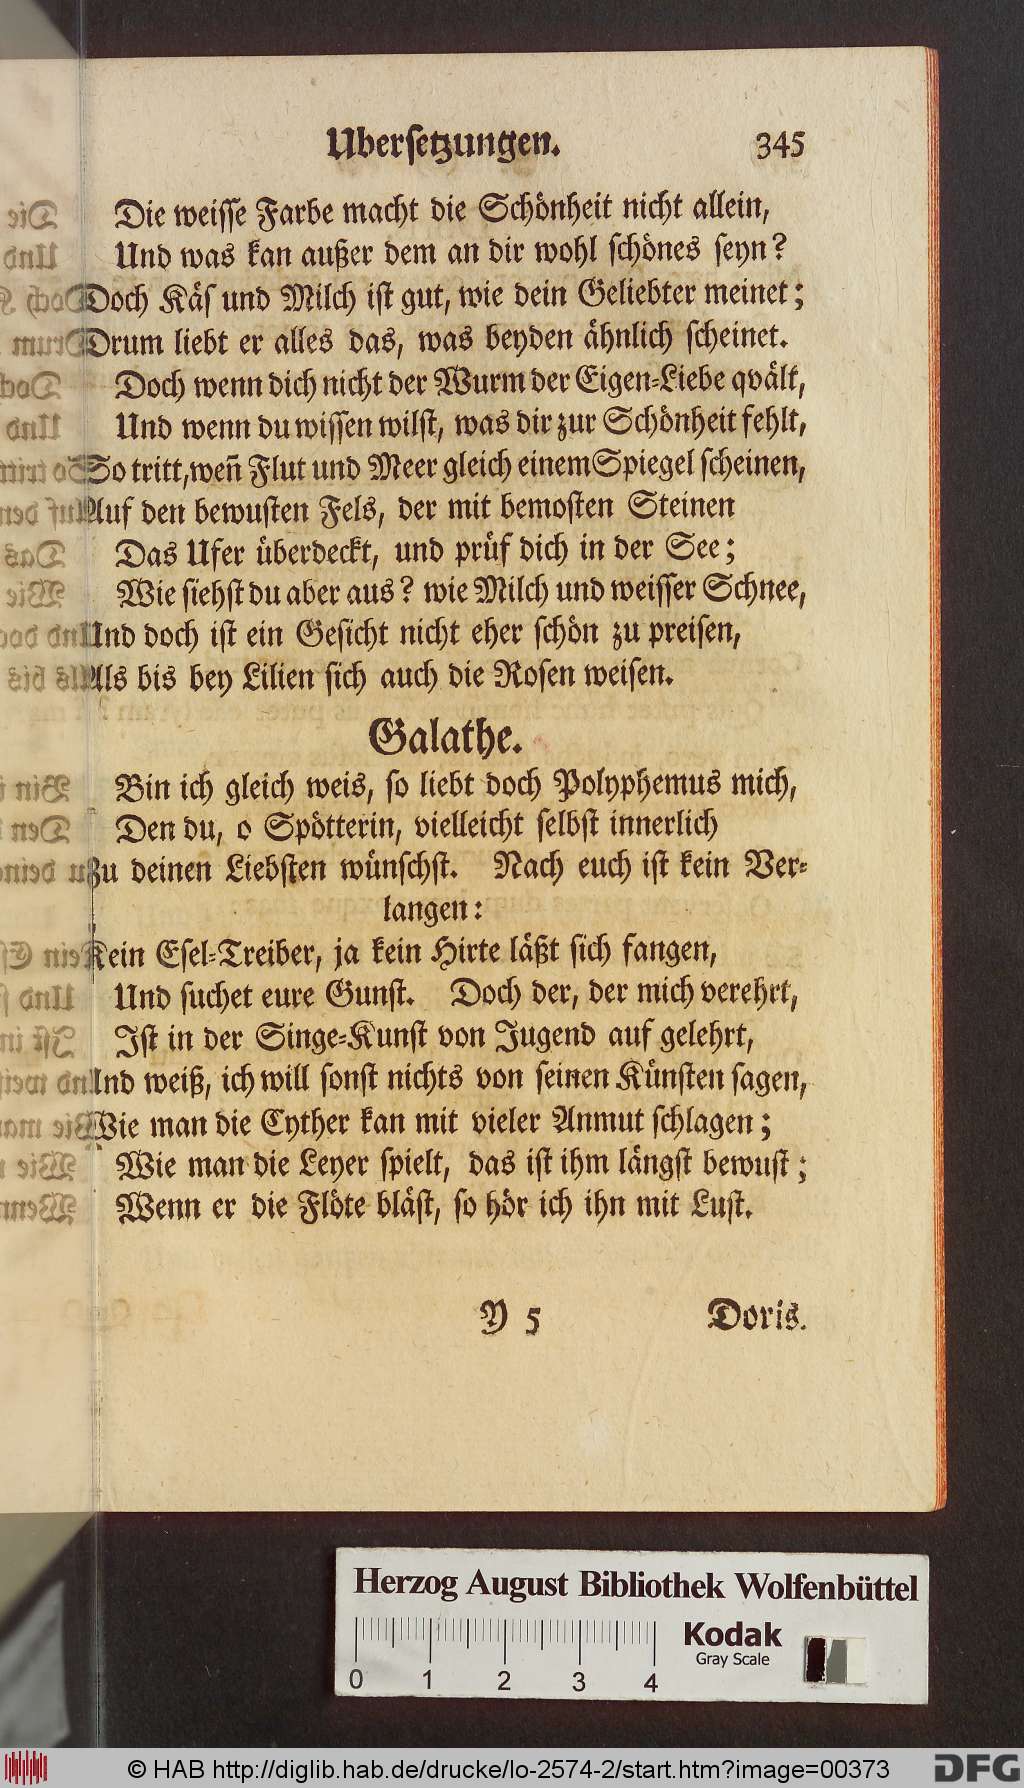 Ubersetzungen. 345
Die weisse Farbe macht die Schönheit nicht allein,
Und was kan außer dem an dir wohl schönes seyn?
Doch Käs und Milch ist gut, wie dein Geliebter meinet;
Drum liebt er alles das, was beyden ähnlich scheinet.
Doch wenn dich nicht der Wurm der Eigen-Liebe qvält,
Und wenn du wissen wilst, was dir zur Schönheit fehlt,
So tritt, weñ Flut und Meer gleich einem Spiegel scheinen,
Auf den bewusten Fels, der mit bemosten Steinen
Das Ufer überdeckt, und prüf dich in der See;
Wie siehst du aber aus? wie Milch und weisser Schnee,
Und doch ist ein Gesicht nicht eher schön zu preisen,
Als bis bey Lilien sich auch die Rosen weisen.
Galathe.
Bin ich gleich weis, so liebt doch Polyphemus mich,
Den du, o Spötterin, vielleicht selbst innerlich
Zu deinen Liebsten wünschst. Nach euch ist kein Ver-
langen:
Kein Esel-Treiber, ja kein Hirte läßt sich fangen,
Und suchet eure Gunst. Doch der, der mich verehrt,
Ist in der Singe-Kunst von Jugend auf gelehrt,
Und weiß, ich will sonst nichts von seinen Künsten sagen,
Wie man die Cyther kan mit vieler Anmut schlagen;
Wie man die Leyer spielt, das ist ihm längst bewust;
Wenn er die Flöte bläst, so hör ich ihn mit Lust.
Y 5 Doris.
Herzog August Bibliothek Wolfenbüttel
Kodak
Gray Scale
0 1 2 3 4
© HAB http://diglib.hab.de/drucke/lo-2574-2/start.htm?image=00373
DFG